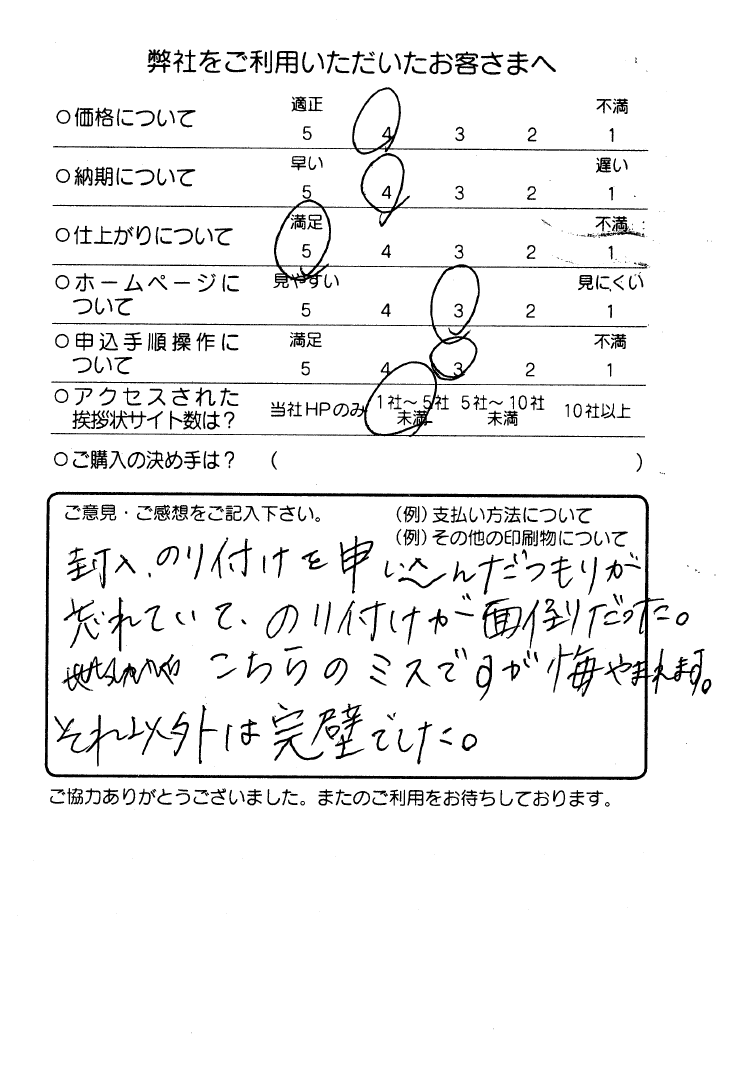 弊社をご利用いただいたお客さまへ
○価格について 適正 不満
5 4 3 2 1
○納期について 早い 遅い
5 4 3 2 1
○仕上がりについて 満足 不満
5 4 3 2 1
○ホームページに 見やすい 見にくい
ついて 5 4 3 2 1
○申込手順操作に 満足 不満
ついて 5 4 3 2 1
○アクセスされた 当社HPのみ 1社〜5社 5社〜10社 10社以上
挨拶状サイト数は？ 未満 未満
○ご購入の決め手は？ （ ）
ご意見・ご感想をご記入下さい。 （例）支払い方法について
（例）その他の印刷物について
封入、のり付けを申し込んだつもりが
忘れていて、のり付けが面倒だった。
こちらのミスですが悔やまれます。
それ以外は完璧でした。
ご協力ありがとうございました。またのご利用をお待ちしております。